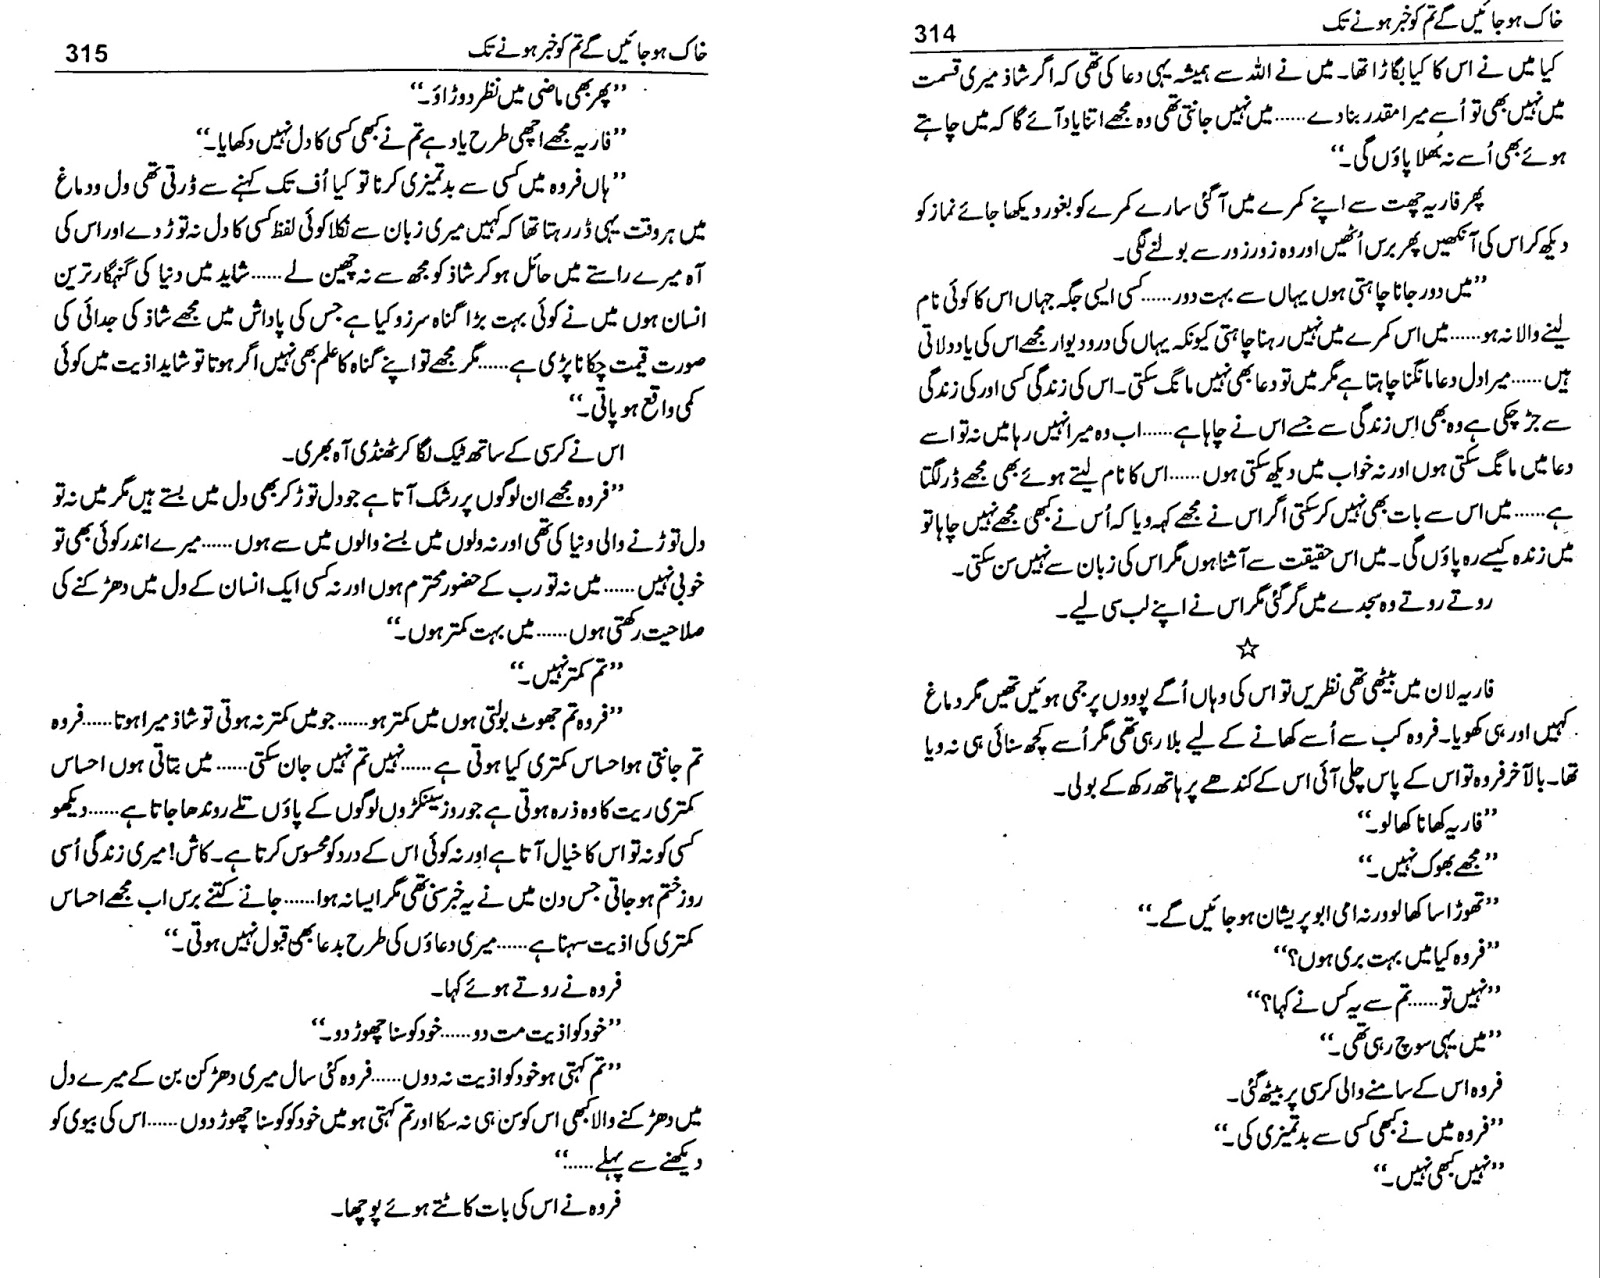 خاک ہو جائیں گے تم کو خبر ہونے تک 314
کیا میں نے اس کا کیا بگاڑا تھا۔ میں نے اللہ سے ہمیشہ یہی دعا کی تھی کہ اگر شاذ میری قسمت
میں نہیں بھی تو اُسے میرا مقدر بنا دے......میں نہیں جانتی تھی وہ مجھے اتنا یاد آئے گا کہ میں چاہتے
ہوئے بھی اُسے نہ بُھلا پاؤں گی۔‘‘
پھر فاریہ چھت سے اپنے کمرے میں آ گئی سارے کمرے کو بغور دیکھا جائے نماز کو
دیکھ کر اس کی آنکھیں پھر برس اُٹھیں اور وہ زور زور سے بولنے لگی۔
’’میں دور جانا چاہتی ہوں یہاں سے بہت دور......کسی ایسی جگہ جہاں اس کا کوئی نام
لینے والا نہ ہو......میں اس کمرے میں نہیں رہنا چاہتی کیونکہ یہاں کی در و دیوار مجھے اس کی یاد دلاتی
ہیں......میرا دل دعا مانگنا چاہتا ہے مگر میں تو دعا بھی نہیں مانگ سکتی۔ اس کی زندگی کسی اور کی زندگی
سے جڑ چکی ہے وہ بھی اس زندگی سے جسے اس نے چاہا ہے......اب وہ میرا نہیں رہا میں نہ تو اسے
دعا میں مانگ سکتی ہوں اور نہ خواب میں دیکھ سکتی ہوں......اس کا نام لیتے ہوئے بھی مجھے ڈر لگتا
ہے......میں اس سے بات بھی نہیں کر سکتی اگر اس نے مجھے کہہ دیا کہ اُس نے کبھی مجھے نہیں چاہا تو
میں زندہ کیسے رہ پاؤں گی۔ میں اس حقیقت سے آشنا ہوں مگر اس کی زبان سے نہیں سن سکتی۔
روتے روتے وہ سجدے میں گر گئی مگر اس نے اپنے لب سی لیے۔
☆
فاریہ لان میں بیٹھی تھی نظریں تو اس کی وہاں اُگے پودوں پر جمی ہوئیں تھیں مگر دماغ
کہیں اور ہی کھویا۔ فروہ کب سے اُسے کھانے کے لیے بلا رہی تھی مگر اُسے کچھ سنائی ہی نہ دیا
تھا۔ بالآخر فروہ تو اس کے پاس چلی آئی اس کے کندھے پر ہاتھ رکھ کے بولی۔
’’فاریہ کھانا کھا لو۔‘‘
’’مجھے بھوک نہیں۔‘‘
’’تھوڑا سا کھا لو ورنہ امی ابو پریشان ہو جائیں گے۔‘‘
’’فروہ کیا میں بہت بری ہوں؟‘‘
’’نہیں تو......تم سے یہ کس نے کہا؟‘‘
’’میں یہی سوچ رہی تھی۔‘‘
فروہ اس کے سامنے والی کرسی پر بیٹھ گئی۔
’’فروہ میں نے کبھی کسی سے بدتمیزی کی۔‘‘
’’نہیں کبھی نہیں۔‘‘
خاک ہو جائیں گے تم کو خبر ہونے تک 315
’’پھر بھی ماضی میں نظر دوڑاؤ۔‘‘
’’فاریہ مجھے اچھی طرح یاد ہے تم نے کبھی کسی کا دل نہیں دکھایا۔‘‘
’’ہاں فروہ میں کسی سے بدتمیزی کرنا تو کیا اُف تک کہنے سے ڈرتی تھی دل و دماغ
میں ہر وقت یہی ڈر رہتا تھا کہ کہیں میری زبان سے نکلا کوئی لفظ کسی کا دل نہ توڑ دے اور اس کی
آہ میرے راستے میں حائل ہو کر شاذ کو مجھ سے نہ چھین لے......شاید میں دنیا کی گنہگار ترین
انسان ہوں میں نے کوئی بہت بڑا گناہ سرزد کیا ہے جس کی پاداش میں مجھے شاذ کی جدائی کی
صورت قیمت چکانا پڑی ہے......مگر مجھے تو اپنے گناہ کا علم بھی نہیں اگر ہوتا تو شاید اذیت میں کوئی
کمی واقع ہو پاتی۔‘‘
اس نے کرسی کے ساتھ ٹیک لگا کر ٹھنڈی آہ بھری۔
’’فروہ مجھے ان لوگوں پر رشک آتا ہے جو دل توڑ کر بھی دل میں بستے ہیں مگر میں نہ تو
دل توڑنے والی دنیا کی تھی اور نہ دلوں میں بسنے والوں میں سے ہوں......میرے اندر کوئی بھی تو
خوبی نہیں......میں نہ تو رب کے حضور محترم ہوں اور نہ کسی ایک انسان کے دل میں دھڑکنے کی
صلاحیت رکھتی ہوں......میں بہت کمتر ہوں۔‘‘
’’تم کمتر نہیں۔‘‘
’’فروہ تم جھوٹ بولتی ہوں میں کمتر ہو......جو میں کمتر نہ ہوتی تو شاذ میرا ہوتا......فروہ
تم جانتی ہو احساس کمتری کیا ہوتی ہے......نہیں تم نہیں جان سکتی......میں بتاتی ہوں احساس
کمتری ریت کا وہ ذرہ ہوتی ہے جو روز سینکڑوں لوگوں کے پاؤں تلے روندھا جاتا ہے......دیکھو
کسی کو نہ تو اس کا خیال آتا ہے اور نہ کوئی اس کے درد کو محسوس کرتا ہے۔ کاش! میری زندگی اُسی
روز ختم ہو جاتی جس دن میں نے یہ خبر سنی تھی مگر ایسا نہ ہوا......جانے کتنے برس اب مجھے احساس
کمتری کی اذیت سہنا ہے......میری دعاؤں کی طرح بدعا بھی قبول نہیں ہوتی۔‘‘
فروہ نے روتے ہوئے کہا۔
’’خود کو اذیت مت دو......خود کو سنا چھوڑ دو۔‘‘
’’تم کہتی ہو خود کو اذیت نہ دوں......فروہ کئی سال میری دھڑکن بن کے میرے دل
میں دھڑکنے والا کبھی اس کو سن ہی نہ سکا اور تم کہتی ہو میں خود کو کوسنا چھوڑ دوں......اس کی بیوی کو
دیکھنے سے پہلے......‘‘
فروہ نے اس کی بات کاٹتے ہوئے پوچھا۔